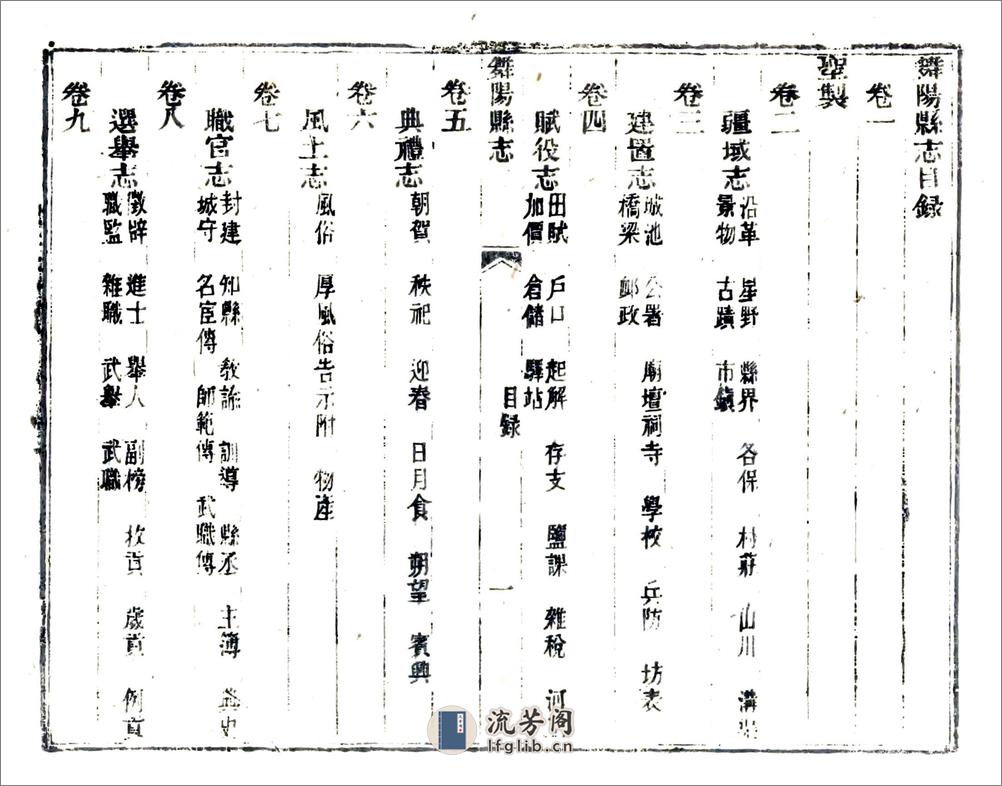 舞陽縣志目録
卷一
聖製
卷二
疆域志 沿革 星野 縣界 各保 村莊 山川 溝渠
景物 古蹟 市鎮
卷三
建置志 城池 公署 廟壇祠寺 學校 兵防 坊表
橋梁 郵政
卷四
賦役志 田賦 戶口 起解 存支 鹽課 雜稅 河
加價 倉儲 驛站
舞陽縣志
目録
一
卷五
典禮志 朝賀 秩祀 迎春 日月食 朔望 賓興
卷六
風土志 風俗 厚風俗告示附 物產
卷七
職官志 封建 知縣 教諭 訓導 縣丞 主簿 典史
城守 名宦傳 師範傳 武職傳
卷八
選舉志 徵辟 進士 舉人 副榜 拔貢 歲貢 例貢
職監 雜職 武舉 武職
卷九
流芳阁
lfglib.cn